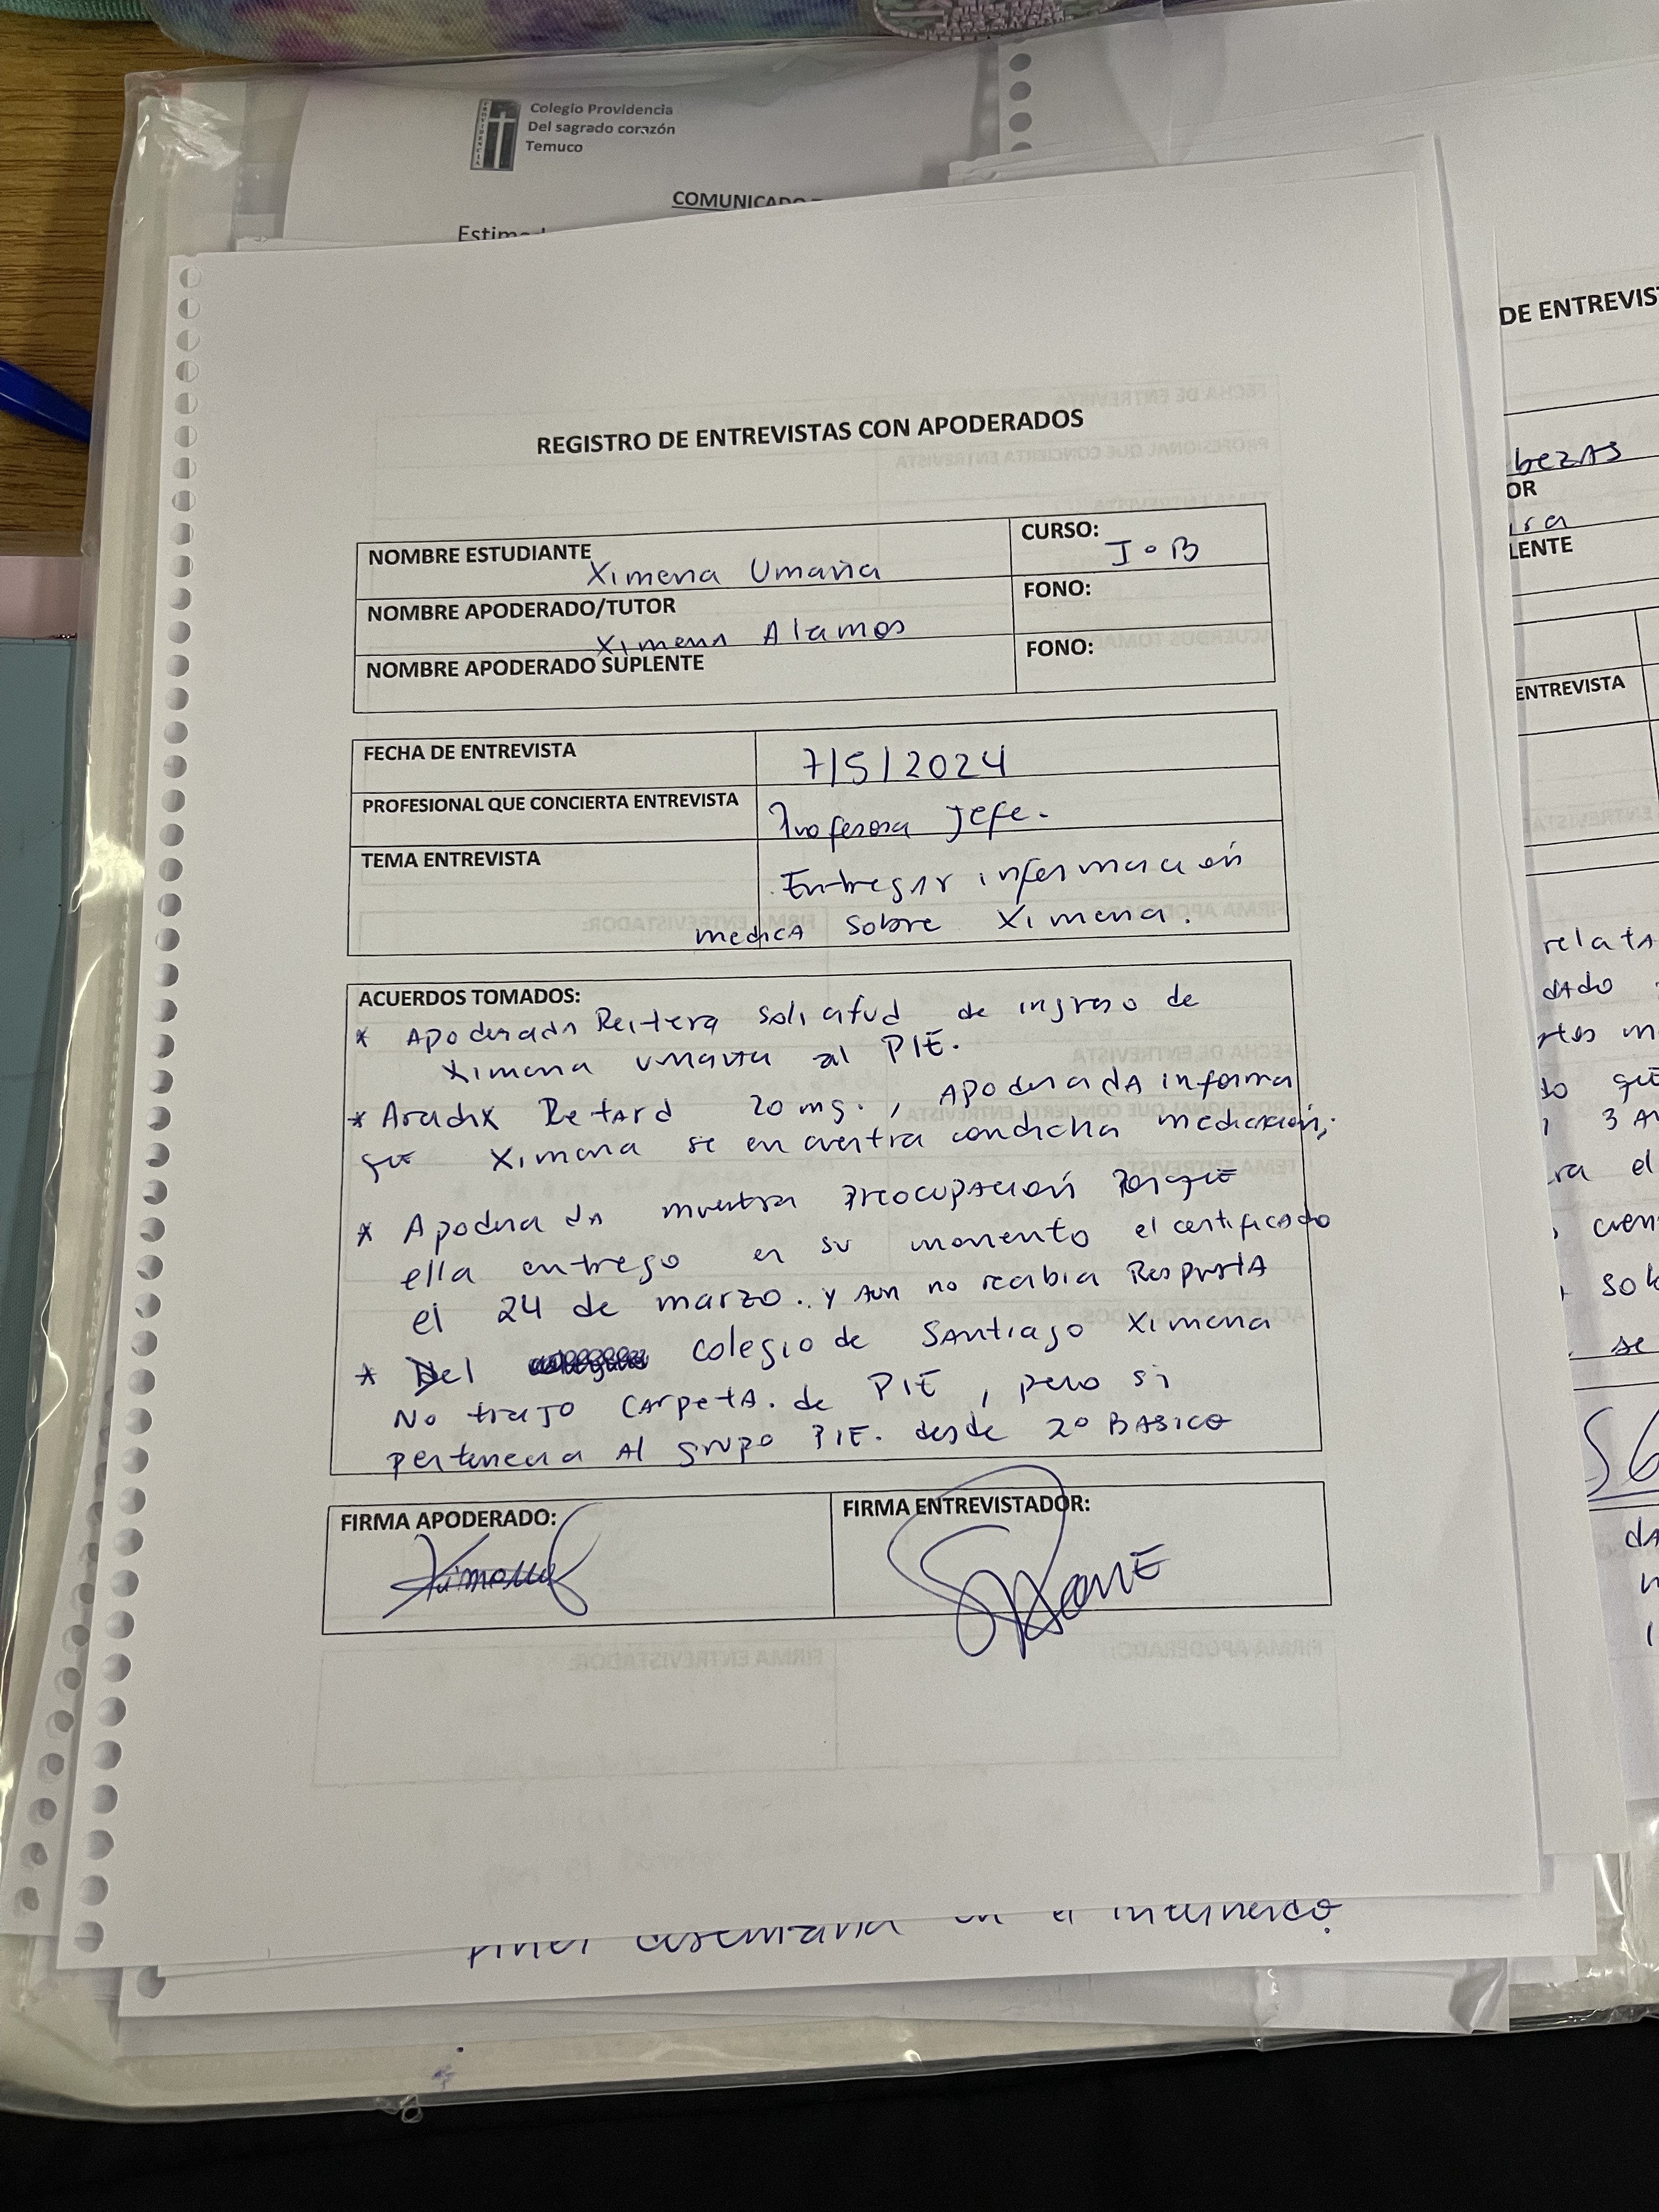 PROVIDENCIA
Colegio Providencia
Del sagrado corazón
Temuco
COMUNICADO
DE ENTREVIS
bezas
OR
ra
LENTE
ENTREVISTA
REGISTRO DE ENTREVISTAS CON APODERADOS
NOMBRE ESTUDIANTE Ximena Umaña
CURSO: I°B
NOMBRE APODERADO/TUTOR Ximena Alamos
FONO:
NOMBRE APODERADO SUPLENTE
FONO:
FECHA DE ENTREVISTA 7/5/2024
PROFESIONAL QUE CONCIERTA ENTREVISTA Profesora Jefe.
TEMA ENTREVISTA Entregar información
medica sobre Ximena.
ACUERDOS TOMADOS:
* Apoderada Reitera solicitud de ingreso de
Ximena Umaña al PIE.
* Aradix Retard 20 mg., Apoderada informa
que Ximena se encuentra con dicha medicación.
* Apoderada muestra preocupación porque
ella entrego en su momento el certificado
el 24 de marzo. y aun no recibia Respuesta
* Del colegio de Santiago Ximena
No trajo carpeta. de PIE, pero si
pertenecia al grupo PIE. desde 2° Basico
FIRMA APODERADO:
FIRMA ENTREVISTADOR:
relata
dado
3
ra el
se